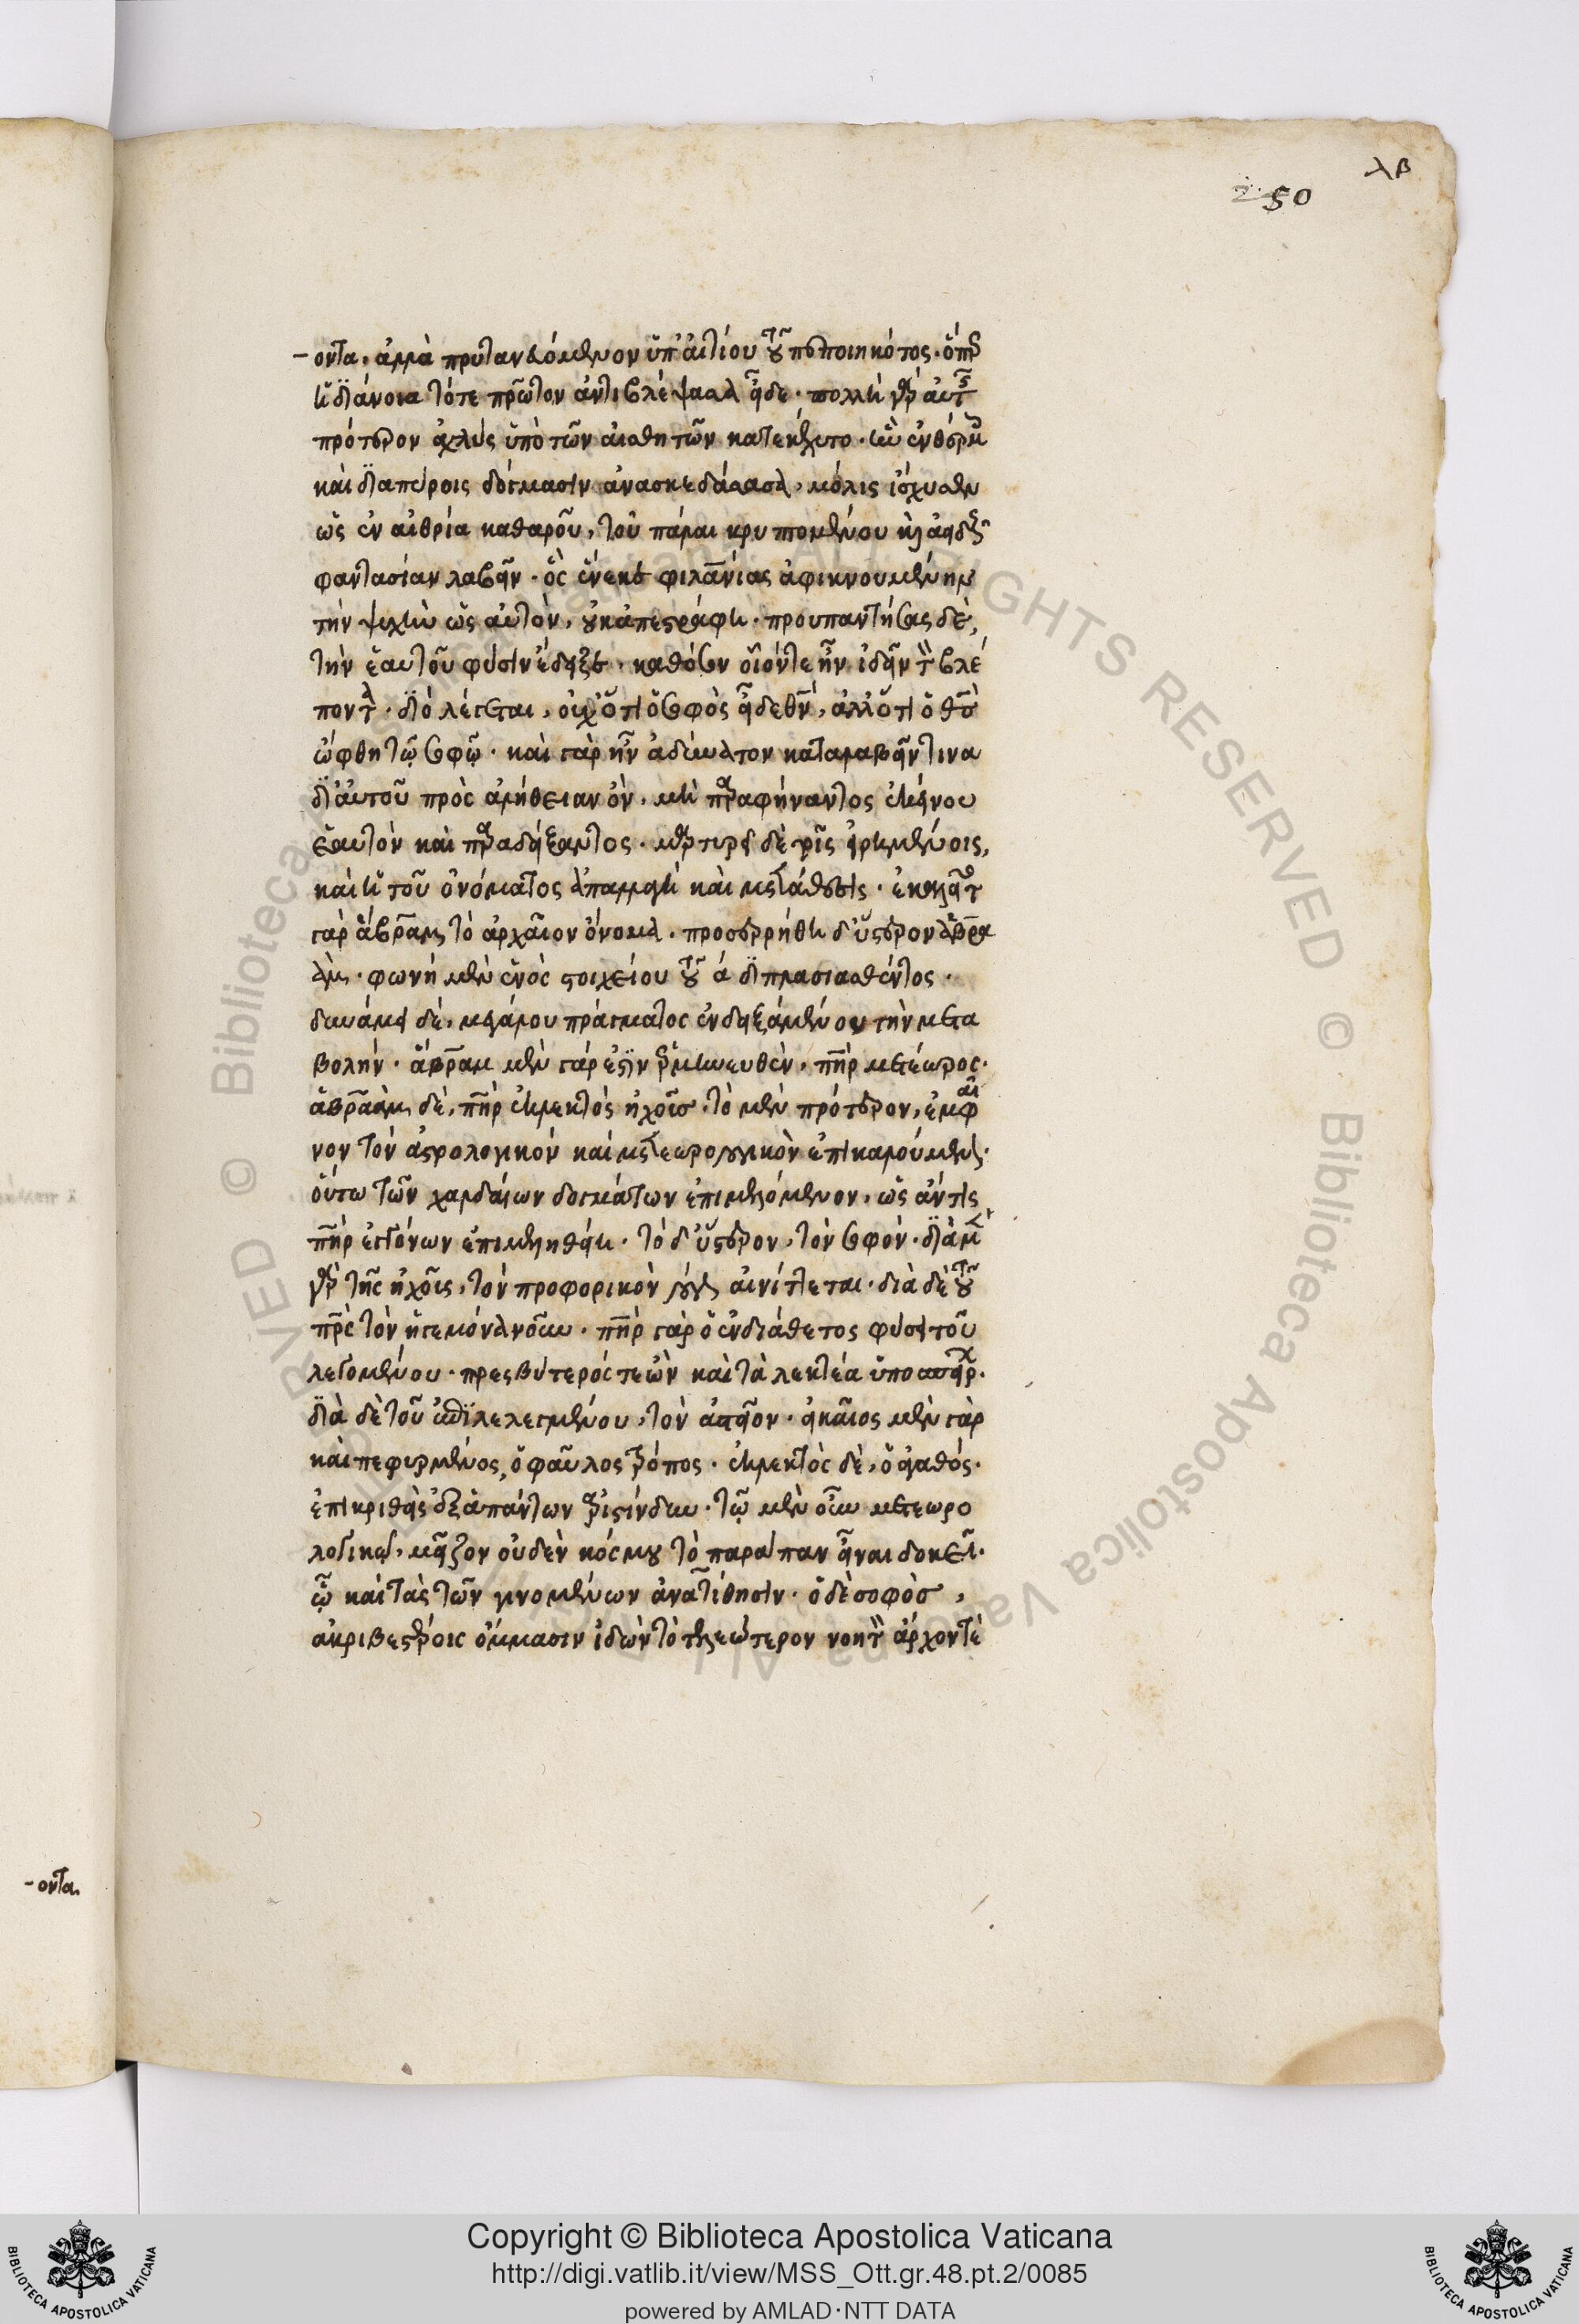 λβ
50
-οντα. ἀλλὰ πρυτανευόμενον ὑπ' αἰτίου τοῦ πεποιηκότος. ὅπερ
ἡ διάνοια τότε πρῶτον ἀντιβλέψασα εἶδε. πολλὴ γὰρ αὐτῆς
πρότερον ἀχλὺς ὑπὸ τῶν αἰσθητῶν κατεκέχυτο. ἣν ἐνθέρμοις
καὶ διαπύροις δόγμασιν ἀνασκεδάσασα, μόλις ἴσχυσεν
ὡς ἐν αἰθρία καθαροῦ, τοῦ πάλαι κρυπτομένου καὶ ἀειδοῦς
φαντασίαν λαβεῖν. ὃς ἕνεκα φιλανθρωπίας ἀφικνουμένην
τὴν ψυχὴν ὡς αὐτὸν, οὐκ ἀπεστράφη. προυπαντήσας δὲ,
τὴν ἑαυτοῦ φύσιν ἔδειξε. καθόσον οἷόν τε ἦν ἰδεῖν τὸν βλέ
ποντα. διὸ λέγεται, οὐχ ὅτι ὁ σοφὸς εἶδε θεόν, ἀλλ' ὅτι ὁ θεὸς
ὤφθη τῷ σοφῷ. καὶ γὰρ ἦν ἀδύνατον καταλαβεῖν τινα
δι' αὐτοῦ πρὸς ἀλήθειαν ὂν, μὴ παραφήναντος ἐκείνου
ἑαυτὸν καὶ παραδείξαντος. μαρτυρεῖ δὲ τοῖς εἰρημένοις,
καὶ ἡ τοῦ ὀνόματος ἀπαλλαγὴ καὶ μετάθεσις. ἐκαλεῖτο
γὰρ ἄβραμ τὸ ἀρχαῖον ὄνομα. προσερρήθη δ' ὕστερον ἀβρα
ὰμ. φωνῆ μὲν ἑνὸς στοιχείου τοῦ ἄ διπλασιασθέντος.
δυνάμει δὲ, μεγάλου πράγματος ἐνδειξάμενον τὴν μετα
βολήν. ἄβραμ μὲν γάρ ἐστιν ἑρμηνευθὲν, πατὴρ μετέωρος.
ἀβραὰμ δὲ, πατὴρ ἐκλεκτὸς ἠχοῦς. τὸ μὲν πρότερον, ἐμφαῖ
νον τὸν ἀστρολογικὸν καὶ μετεωρολογικὸν ἐπικαλούμενον.
οὕτω τῶν χαλδαίων δογμάτων ἐπιμελόμενον, ὡς ἄν τις
πατὴρ ἐγγόνων ἐπιμεληθείη. τὸ δ' ὕστερον, τὸν σοφόν. διὰ μὲν
γὰρ τῆς ἠχοῦς, τὸν προφορικὸν λόγον αἰνίττεται. διὰ δὲ τοῦ
πατρὸς τὸν ἡγεμόνα νοῦν. πατὴρ γὰρ ὁ ἐνδιάθετος φύσει τοῦ
λεγομένου. πρεσβύτερός τε ὢν καὶ τὰ λεκτέα ὑποσπείρων.
διὰ δὲ τοῦ ἐπιλελεγμένου, τὸν ἀστεῖον. εἰκαῖος μὲν γὰρ
καὶ πεφυρμένος, ὁ φαῦλος τρόπος. ἐκλεκτὸς δὲ, ὁ ἀγαθός.
ἐπικριθεὶς ἐξ ἁπάντων ἀριστίνδην. τῷ μὲν οὖν μετεωρο
λογικῷ, μεῖζον οὐδὲν κόσμου τὸ παράπαν εἶναι δοκεῖ.
ᾧ καὶ τὰς τῶν γινομένων ἀνατίθησιν. ὁ δὲ σοφὸς,
ἀκριβεστέροις ὄμμασιν ἰδὼν τὸ τελεώτερον νοητὸν ἄρχοντά
-οντα.
Copyright © Biblioteca Apostolica Vaticana
http://digi.vatlib.it/view/MSS_Ott.gr.48.pt.2/0085
powered by AMLAD·NTT DATA